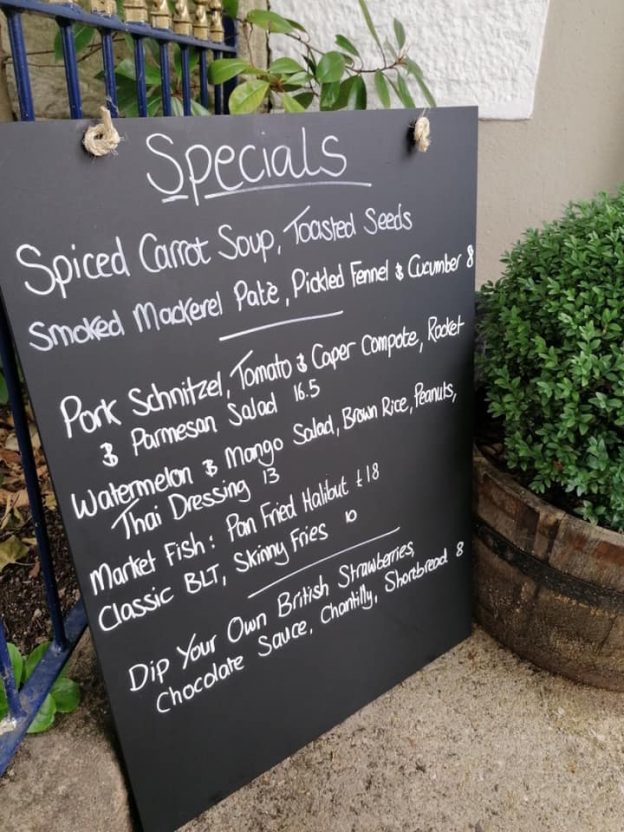 Specials
Spiced Carrot Soup, Toasted Seeds
Smoked Mackerel Patè, Pickled Fennel & Cucumber 8
Pork Schnitzel, Tomato & Caper Compote, Rocket
& Parmesan Salad 16.5
Watermelon & Mango Salad, Brown Rice, Peanuts,
Thai Dressing 13
Market Fish: Pan Fried Halibut £18
Classic BLT, Skinny Fries 10
Dip Your Own British Strawberries,
Chocolate Sauce, Chantilly, Shortbread 8